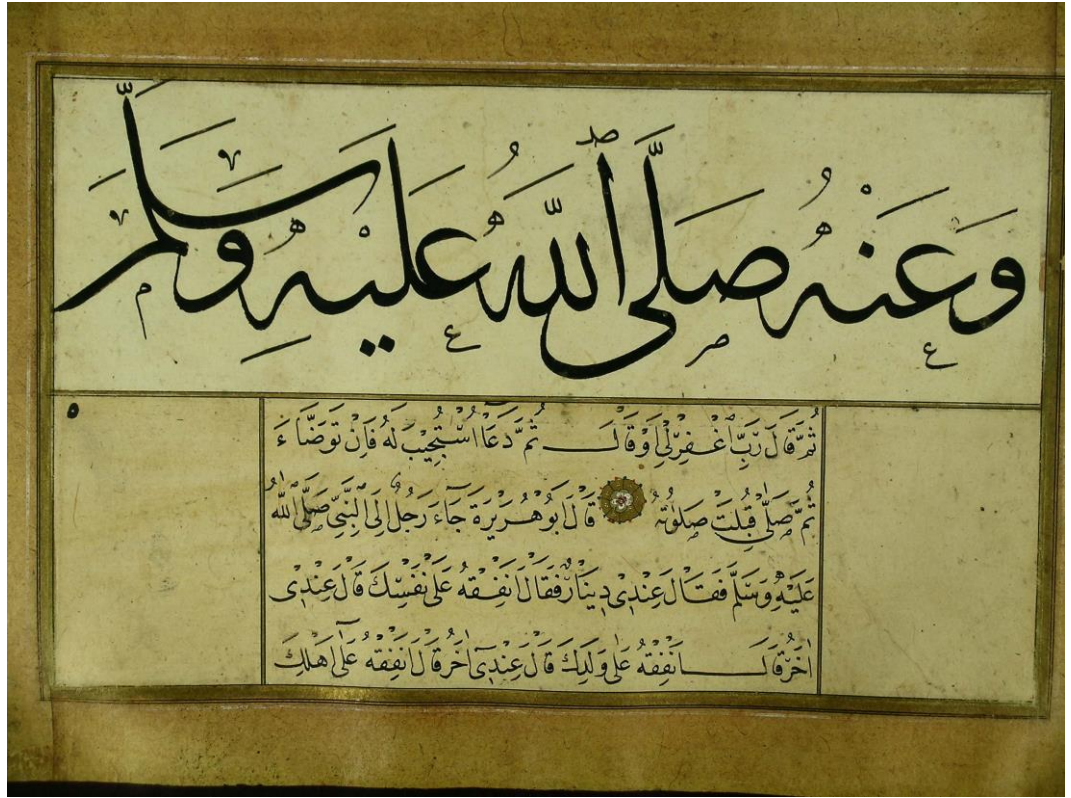 وَعَنْهُ صَلَّى ٱللَّهُ عَلَيْهِ وَسَلَّمَ
ثُمَّ قَالَ رَبِّ ٱغْفِرْلِي اَوْ قَالَ ثُمَّ دَعَا اسْتُجِيْبَ لَهُ فَاِنْ تَوَضَّاءَ
ثُمَّ صَلّٰى قُبِلَتْ صَلٰوتُهُ قَالَ اَبُو هُرَيْرَةَ جَآءَ رَجُلٌ اِلَى ٱلنَّبِيِّ صَلَّى ٱللّٰهُ
عَلَيْهِ وَسَلَّمَ فَقَالَ عِنْدِي دِينَارٌ فَقَالَ اَنْفِقْهُ عَلٰى نَفْسِكَ قَالَ عِنْدِي
اٰخَرُ قَالَ اَنْفِقْهُ عَلٰى وَلَدِكَ قَالَ عِنْدِيٓ اٰخَرُ قَالَ اَنْفِقْهُ عَلٰٓى اَهْلِكَ